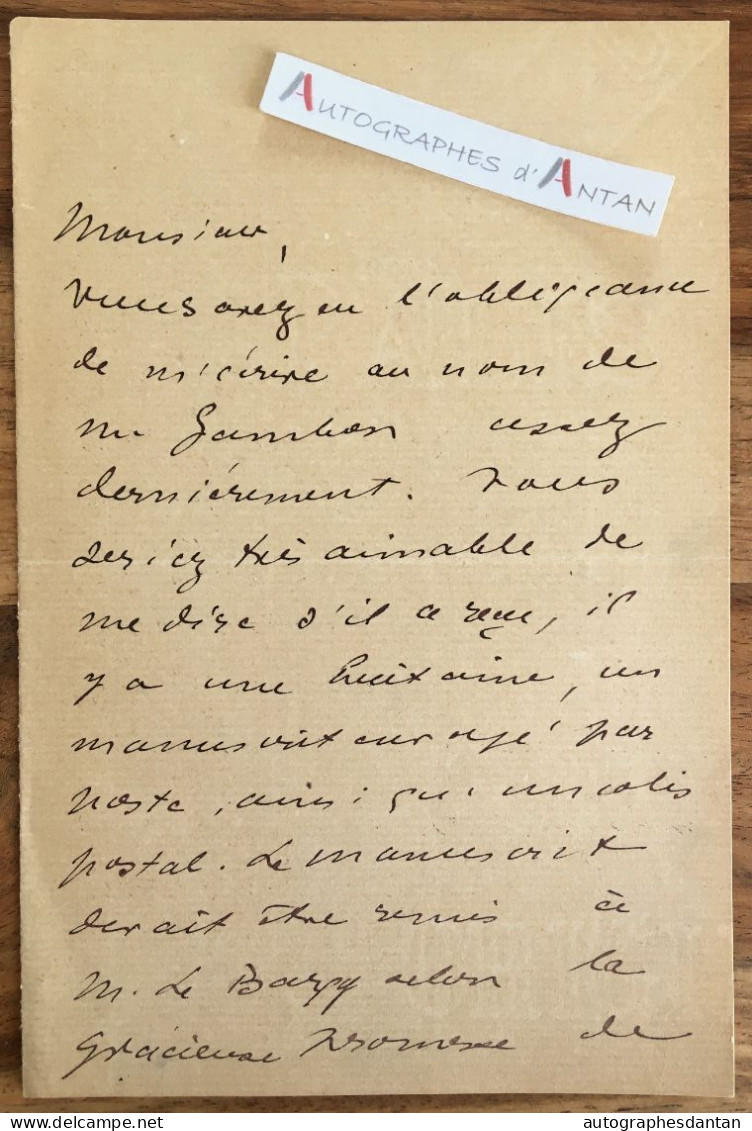 AUTOGRAPHES d'ANTAN
Monsieur,
Vous avez eu l'obligeance
de m'écrire au nom de
M. Gambon assez
dernièrement. Vous
seriez très aimable de
me dire s'il a reçu, il
y a une huitaine, un
manuscrit envoyé par
poste, ainsi qu'un colis
postal. Le manuscrit
devait être remis à
M. Le Bargy selon la
gracieuse promesse de
delcampe.net
autographesdantan